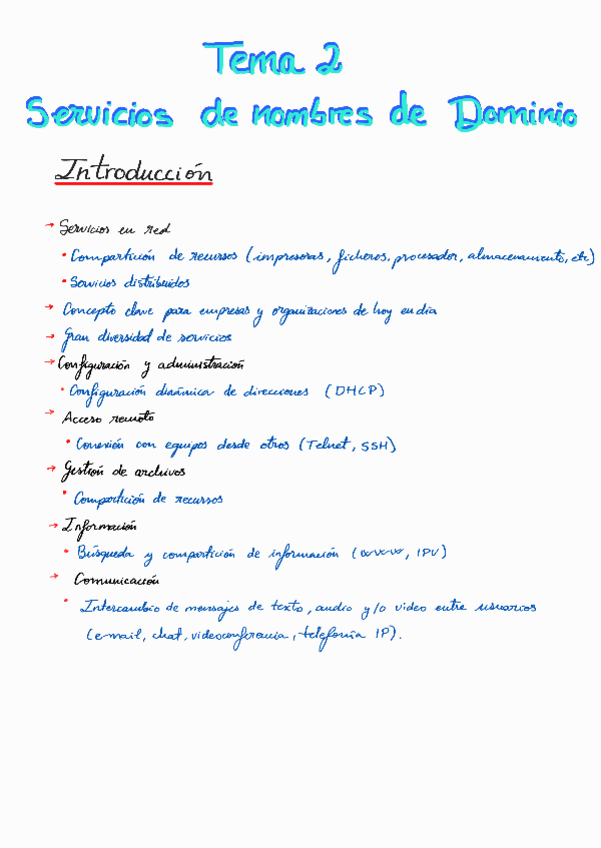 Tema 2
Servicios de nombres de Dominio
Introducción
→ Servicios en red
• Compartición de recursos (impresoras, ficheros, procesador, almacenamiento, etc)
• Servicios distribuidos
→ Concepto clave para empresas y organizaciones de hoy en día
→ Gran diversidad de servicios
→ Configuración y administración
• Configuración dinámica de direcciones (DHCP)
→ Acceso remoto
• Conexión con equipos desde otros (Telnet, SSH)
→ Gestión de archivos
• Compartición de recursos
→ Información
• Búsqueda y compartición de información (www, IPV)
→ Comunicación
• Intercambio de mensajes de texto, audio y/o video entre usuarios
(e-mail, chat, videoconferencia, telefonía IP).